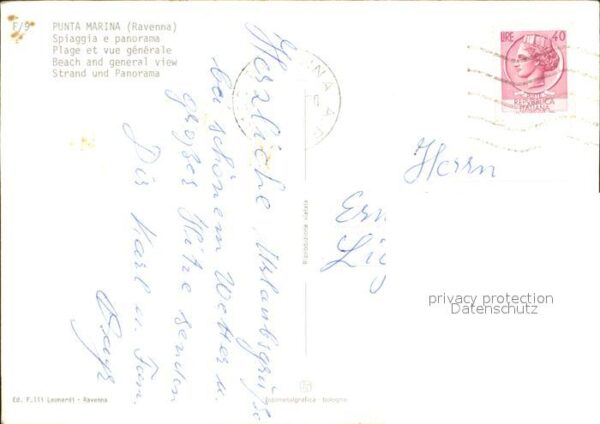 F/9 PUNTA MARINA (Ravenna)
Spiaggia e panorama
Plage et vue générale
Beach and general view
Strand und Panorama
LIRE 40
POSTE
REPUBBLICA
ITALIANA
Herzliche Urlaubsgrüße
bei schönem Wetter u.
großer Hitze senden
Dir Karl u. Fam.
Herrn
Ern
Riproduzione vietata
privacy protection
Datenschutz
Ed. F.lli Leonardi - Ravenna
Fotometalgrafica - bologna